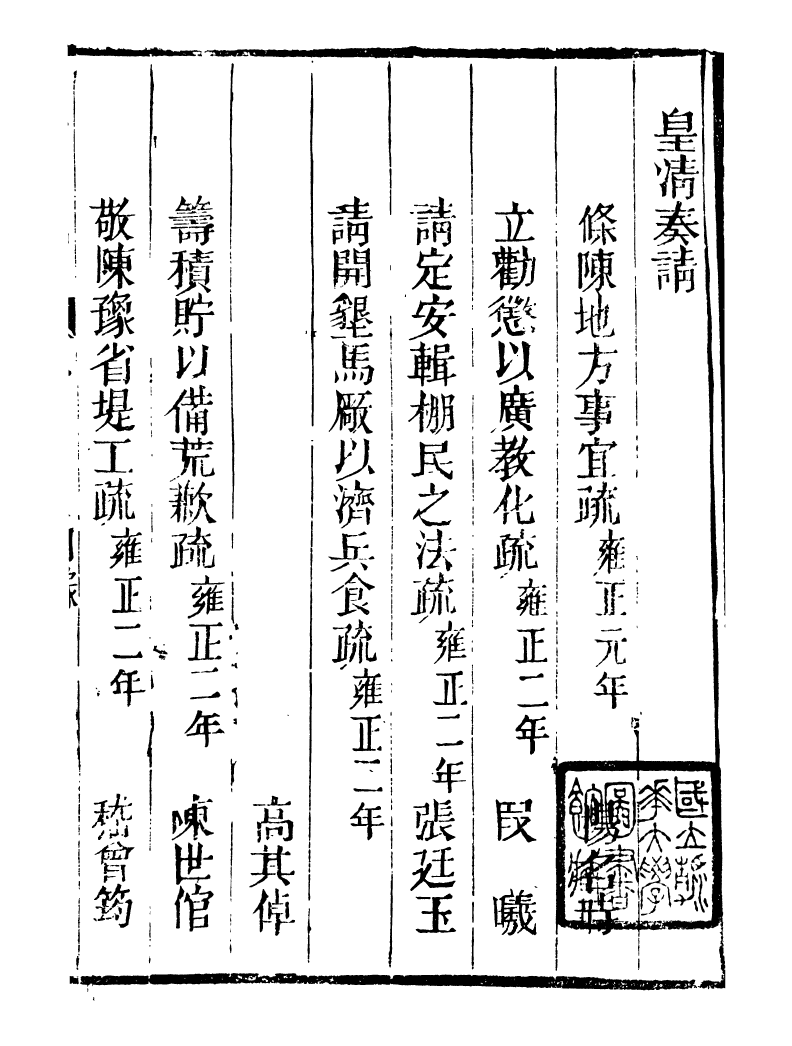 皇清奏請
條陳地方事宜疏 雍正元年 楊名時
立勸懲以廣教化疏 雍正二年 段曦
請定安輯棚民之法疏 雍正二年 張廷玉
請開墾馬厰以濟兵食疏 雍正二年
高其倬
籌積貯以備荒歉疏 雍正二年 陳世倌
敬陳豫省堤工疏 雍正二年 嵇曾筠
目錄
國立清
華大學
圖書
館藏